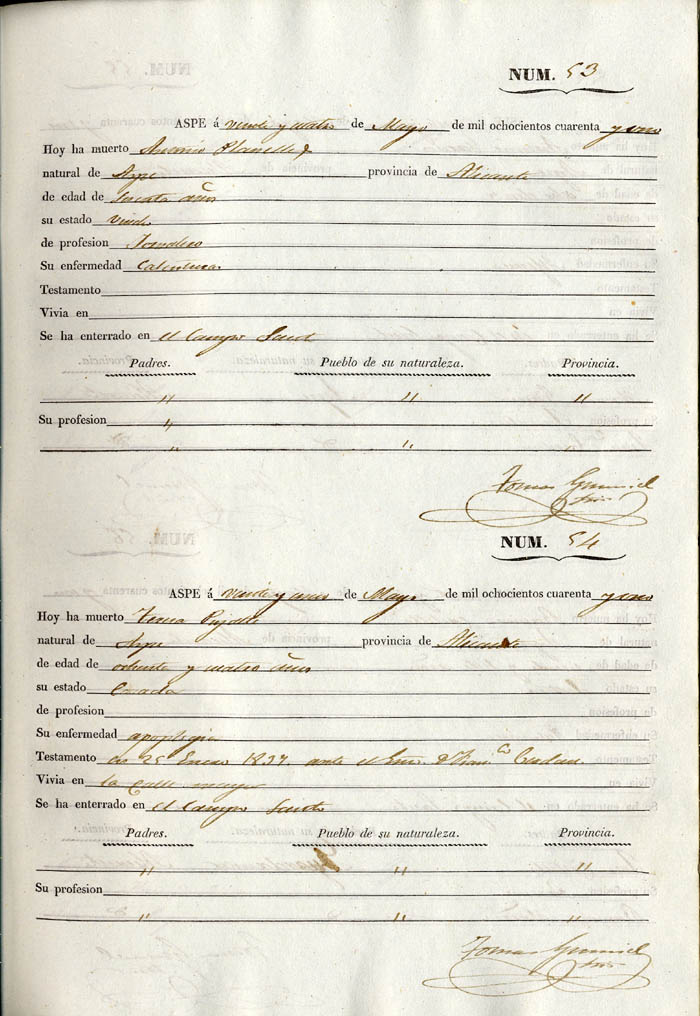 NUM. 53
ASPE á veinte y cuatro de Mayo de mil ochocientos cuarenta y uno
Hoy ha muerto Antonio Planelles
natural de Aspe provincia de Alicante
de edad de años
su estado Viudo
de profesion
Su enfermedad Calentura
Testamento
Vivia en
Se ha enterrado en el Campo Santo
Padres. Pueblo de su naturaleza. Provincia.
" " "
Su profesion "
" "
Tomas
NUM. 54
ASPE á veinte y de Mayo de mil ochocientos cuarenta y uno
Hoy ha muerto Teresa Pujalte
natural de Aspe provincia de Alicante
de edad de ochenta y cuatro años
su estado Casada
de profesion
Su enfermedad apoplegia
Testamento en 25 Enero 1837. ante el Esno. Dn. Franco.
Vivia en la Calle mayor
Se ha enterrado en el Campo Santo
Padres. Pueblo de su naturaleza. Provincia.
" " "
Su profesion
" " "
Tomas